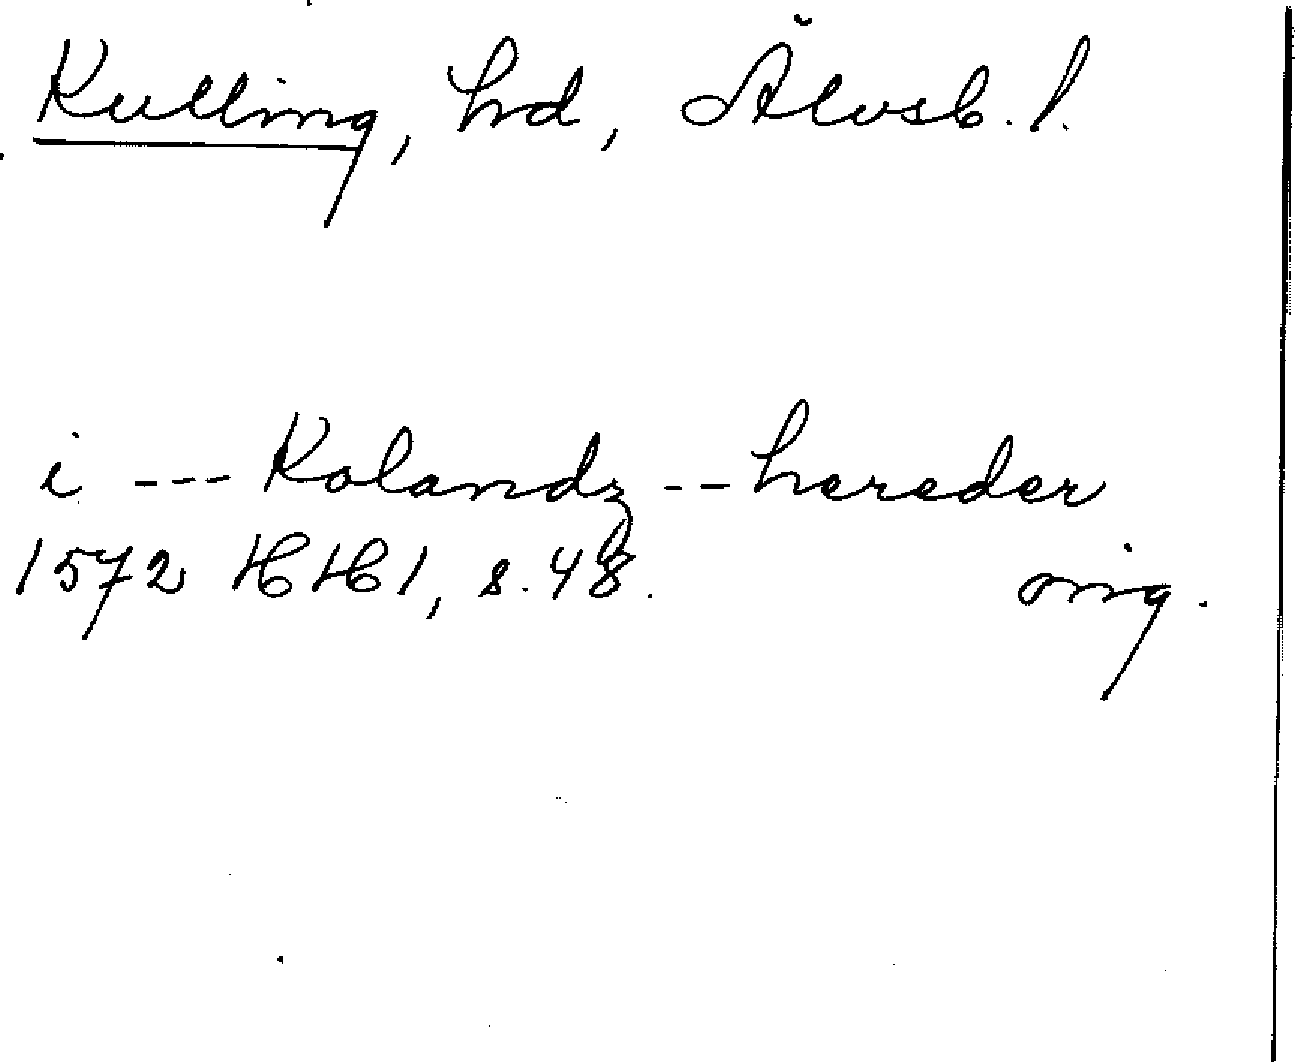 Kulling, hd, Älvsb. l.
i --- Kolandz -- hereder
1572 HH 1, s. 48.
orig.